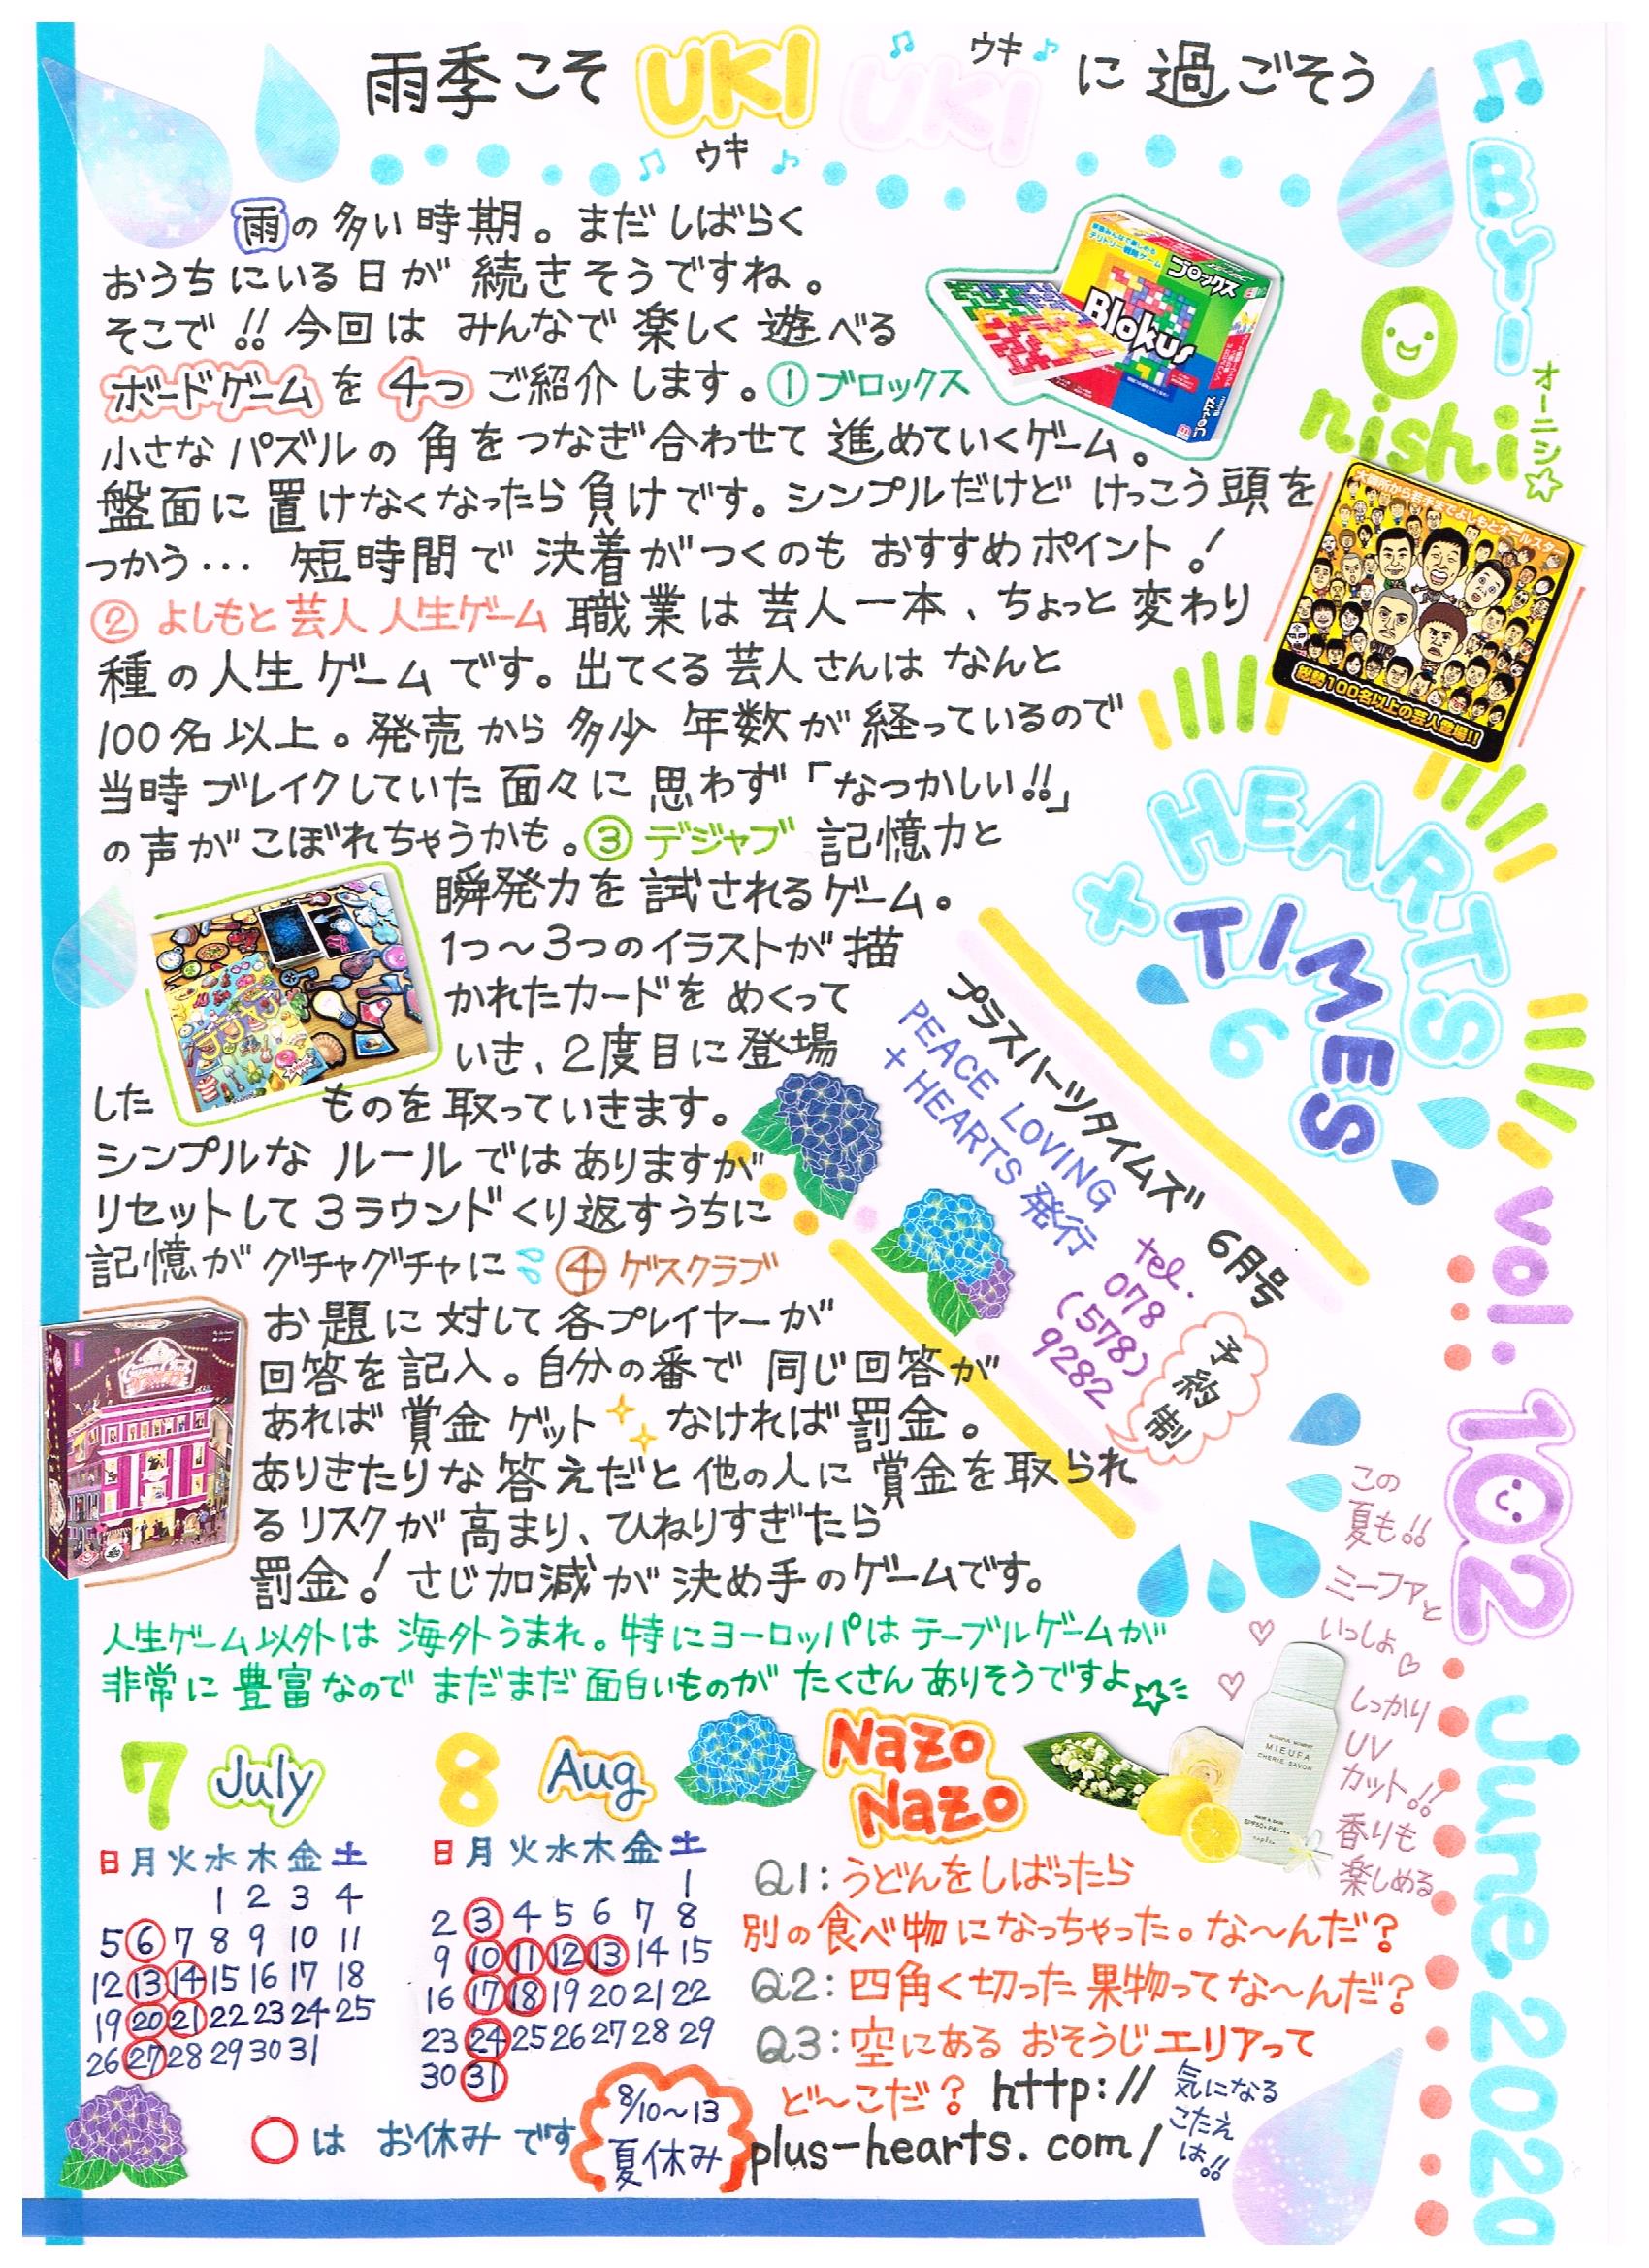 雨季こそ UKI UKI に過ごそう
ウキ♪
♫ ウキ ♪
♫ BY:
Onishi
オーニシ☆
雨の多い時期。まだしばらく
おうちにいる日が続きそうですね。
そこで!!今回はみんなで楽しく遊べる
ボードゲームを4つご紹介します。①ブロックス
小さなパズルの角をつなぎ合わせて進めていくゲーム。
盤面に置けなくなったら負けです。シンプルだけどけっこう頭を
つかう… 短時間で決着がつくのもおすすめポイント!
②よしもと芸人人生ゲーム 職業は芸人一本、ちょっと変わり
種の人生ゲームです。出てくる芸人さんはなんと
100名以上。発売から多少年数が経っているので
当時ブレイクしていた面々に思わず「なつかしい!!」
の声がこぼれちゃうかも。③デジャブ 記憶力と
瞬発力を試されるゲーム。
1つ～3つのイラストが描
かれたカードをめくって
いき、2度目に登場
した ものを取っていきます。
シンプルなルールではありますが
リセットして3ラウンドくり返すうちに
記憶がグチャグチャに ④ゲスクラブ
お題に対して各プレイヤーが
回答を記入。自分の番で同じ回答が
あれば賞金ゲット なければ罰金。
ありきたりな答えだと他の人に賞金を取られ
るリスクが高まり、ひねりすぎたら
罰金!さじ加減が決め手のゲームです。
人生ゲーム以外は海外うまれ。特にヨーロッパはテーブルゲームが
非常に豊富なのでまだまだ面白いものがたくさんありそうですよ☆
ブロックス
Blokus
大御所から若手までよしもとオールスター
総勢100名以上の芸人登場!!
+HEARTS
TIMES
6
vol.102
June 2020
プラスハーツタイムズ 6月号
PEACE LOVING
+HEARTS 発行
tel.
078
(578)
9282
予約制
この
夏も!!
ミーファと
いっしょ♡
しっかり
UV
カット!!
香りも
楽しめる
MIEUFA
CHERIE SAVON
7 July
日 月 火 水 木 金 土
1 2 3 4
5 6 7 8 9 10 11
12 13 14 15 16 17 18
19 20 21 22 23 24 25
26 27 28 29 30 31
8 Aug
日 月 火 水 木 金 土
1
2 3 4 5 6 7 8
9 10 11 12 13 14 15
16 17 18 19 20 21 22
23 24 25 26 27 28 29
30 31
○は お休みです
8/10～13
夏休み
Nazo
Nazo
Q1:うどんをしばったら
別の食べ物になっちゃった。な～んだ?
Q2:四角く切った果物ってな～んだ?
Q3:空にある おそうじエリアって
ど～こだ?
http://
plus-hearts.com/
気になる
こたえ
は!!